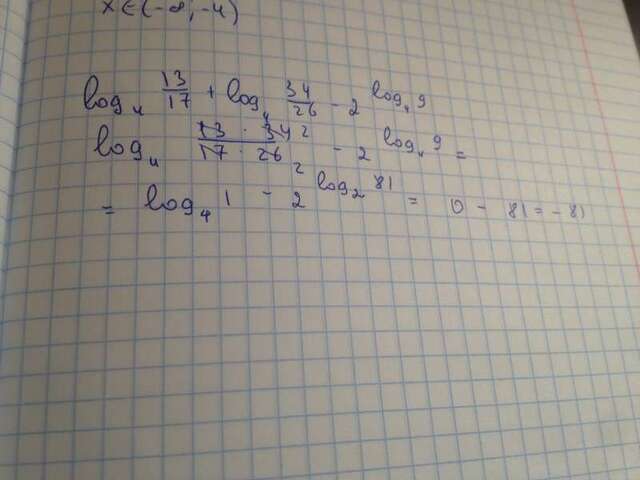 x ∈ (-∞; -4)
log₄ 13/17 + log₄ 34/26 - 2^log₄ 9
log₄ 13 · 34 2 / 17 · 26 2 - 2^log₄ 9 =
= log₄ 1 - 2^log₂ 81 = 0 - 81 = - 81